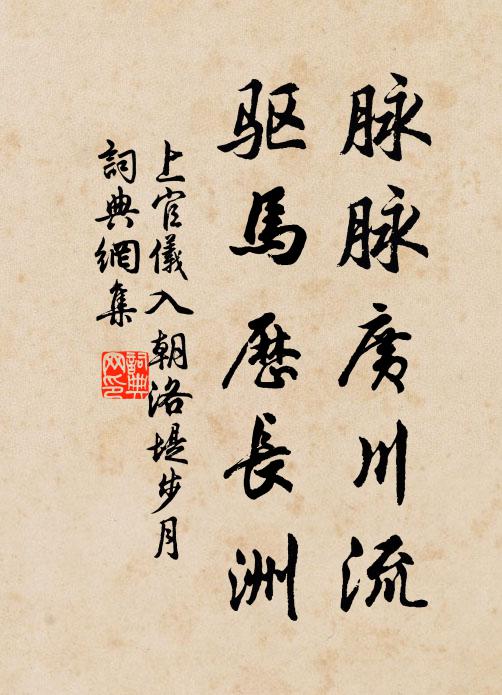 脉脉廣川流
驱馬歷長洲
上官儀入朝洛堤步月
詞典網集
詞典网印